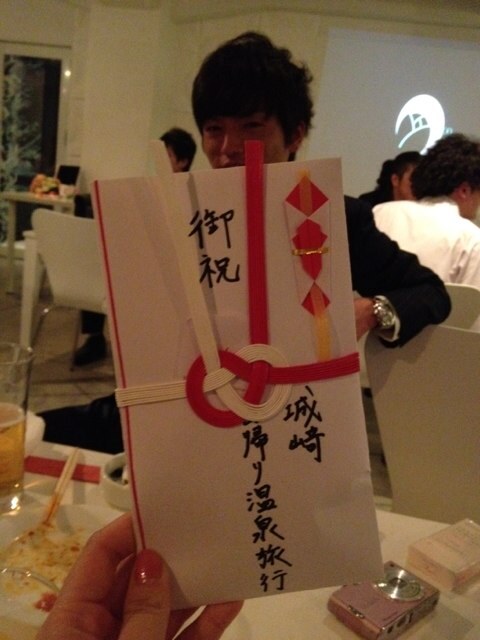 御祝
城崎
帰り温泉旅行